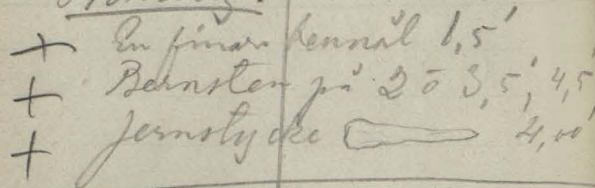 + En finare bennål 1,5'
+ Bernsten på 2 o 3,5', 4,5'
+ Jernstycke 4,00'